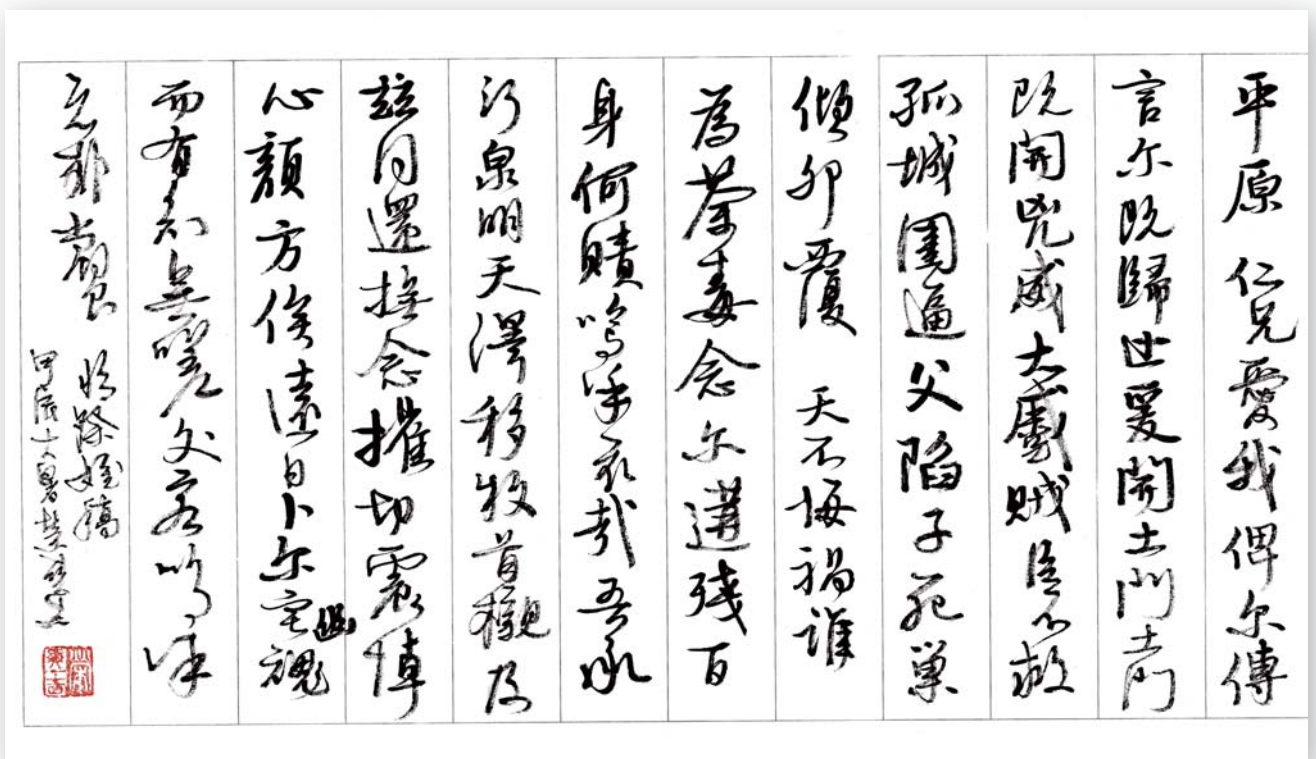 平原 仁兄愛我俾尔傳
言尔既歸止爰開土門土門
既開兇威大蹙賊臣不救
孤城圍逼父陷子死巢
傾卵覆 天不悔禍誰
為荼毒念尔遘殘百
身何贖嗚乎哀哉吾承
河泉明天澤移牧首櫬及
茲同還撫念摧切震悼
心顏方俟遠日卜尔宅幽魂
而有知無嗟久客嗚呼
哀哉尚饗
臨祭姪稿
甲辰大暑